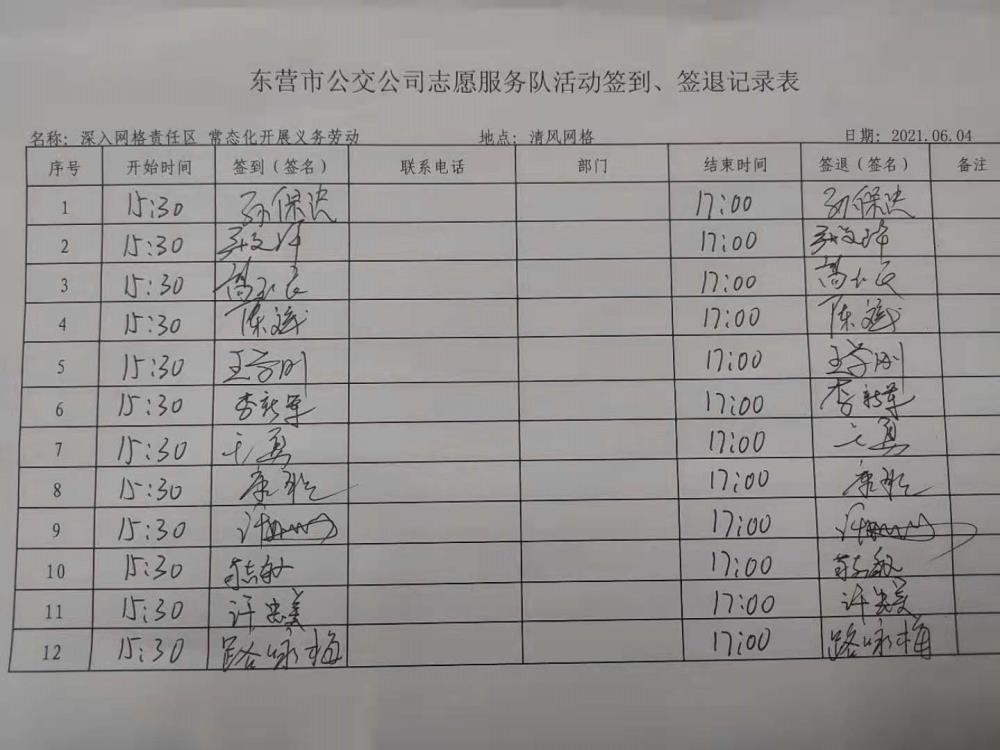 东营市公交公司志愿服务队活动签到、签退记录表
名称：深入网格责任区 常态化开展义务劳动 地点：清风网格 日期：2021.06.04
序号 开始时间 签到（签名） 联系电话 部门 结束时间 签退（签名） 备注
1 15:30 孙保洪 17:00 孙保洪
2 15:30 17:00
3 15:30 17:00
4 15:30 陈斌 17:00 陈斌
5 15:30 王学刚 17:00 王学刚
6 15:30 李新军 17:00 李新军
7 15:30 王勇 17:00 王勇
8 15:30 17:00
9 15:30 17:00
10 15:30 17:00
11 15:30 许忠美 17:00 许忠美
12 15:30 路咏梅 17:00 路咏梅